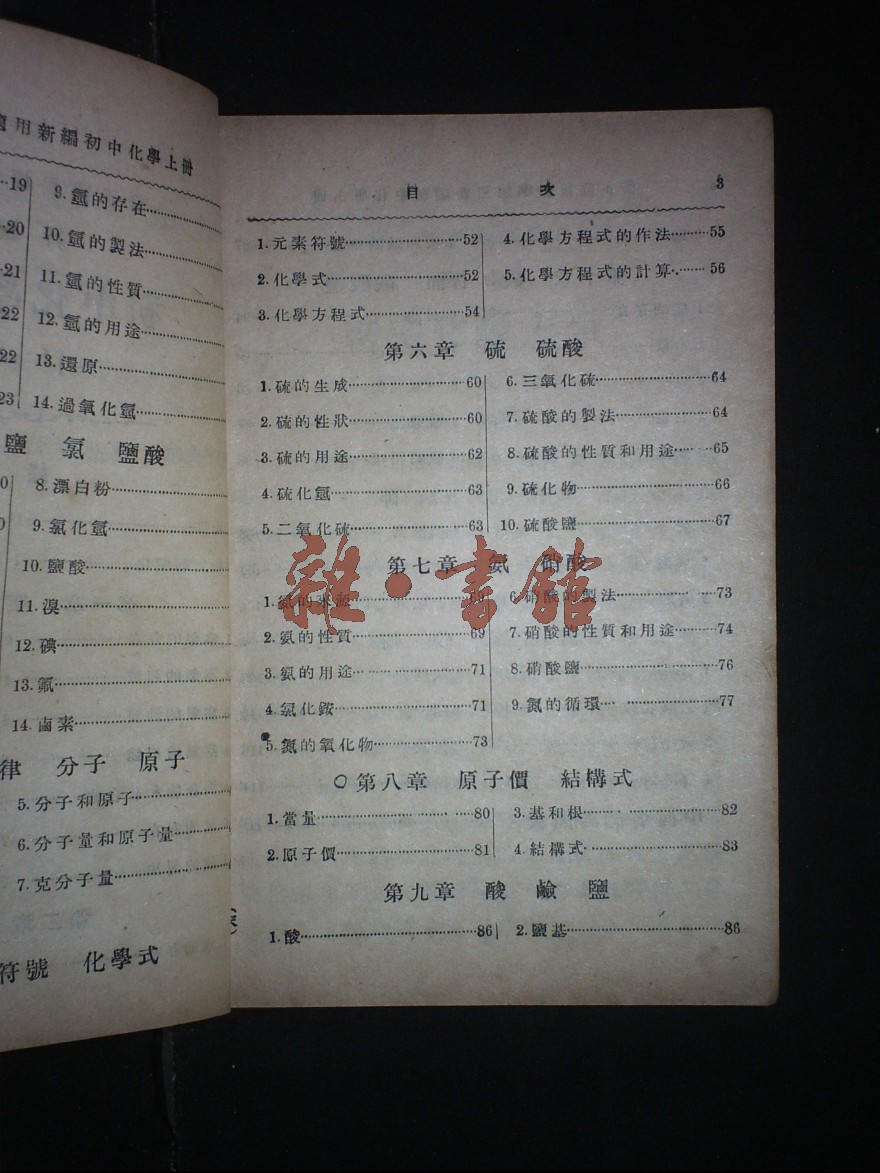 用新編初中化學上冊
19 9.氫的存在
20 10.氫的製法
21 11.氫的性質
22 12.氫的用途
22 13.還原
23 14.過氧化氫
鹽 氯 鹽酸
0 8.漂白粉
0 9.氯化氫
10.鹽酸
11.溴
12.碘
13.氟
14.鹵素
律 分子 原子
5.分子和原子
6.分子量和原子量
7.克分子量
符號 化學式
目 次 3
1.元素符號 52 4.化學方程式的作法 55
2.化學式 52 5.化學方程式的計算 56
3.化學方程式 54
第六章 硫 硫酸
1.硫的生成 60 6.三氧化硫 64
2.硫的性狀 60 7.硫酸的製法 64
3.硫的用途 62 8.硫酸的性質和用途 65
4.硫化氫 63 9.硫化物 66
5.二氧化硫 63 10.硫酸鹽 67
第七章 氨 硝酸
1.氨的來源 69 6.硝酸的製法 73
2.氨的性質 69 7.硝酸的性質和用途 74
3.氨的用途 71 8.硝酸鹽 76
4.氯化銨 71 9.氮的循環 77
5.氮的氧化物 73
第八章 原子價 結構式
1.當量 80 3.基和根 82
2.原子價 81 4.結構式 83
第九章 酸 鹼 鹽
1.酸 86 2.鹽基 86
雜·書館